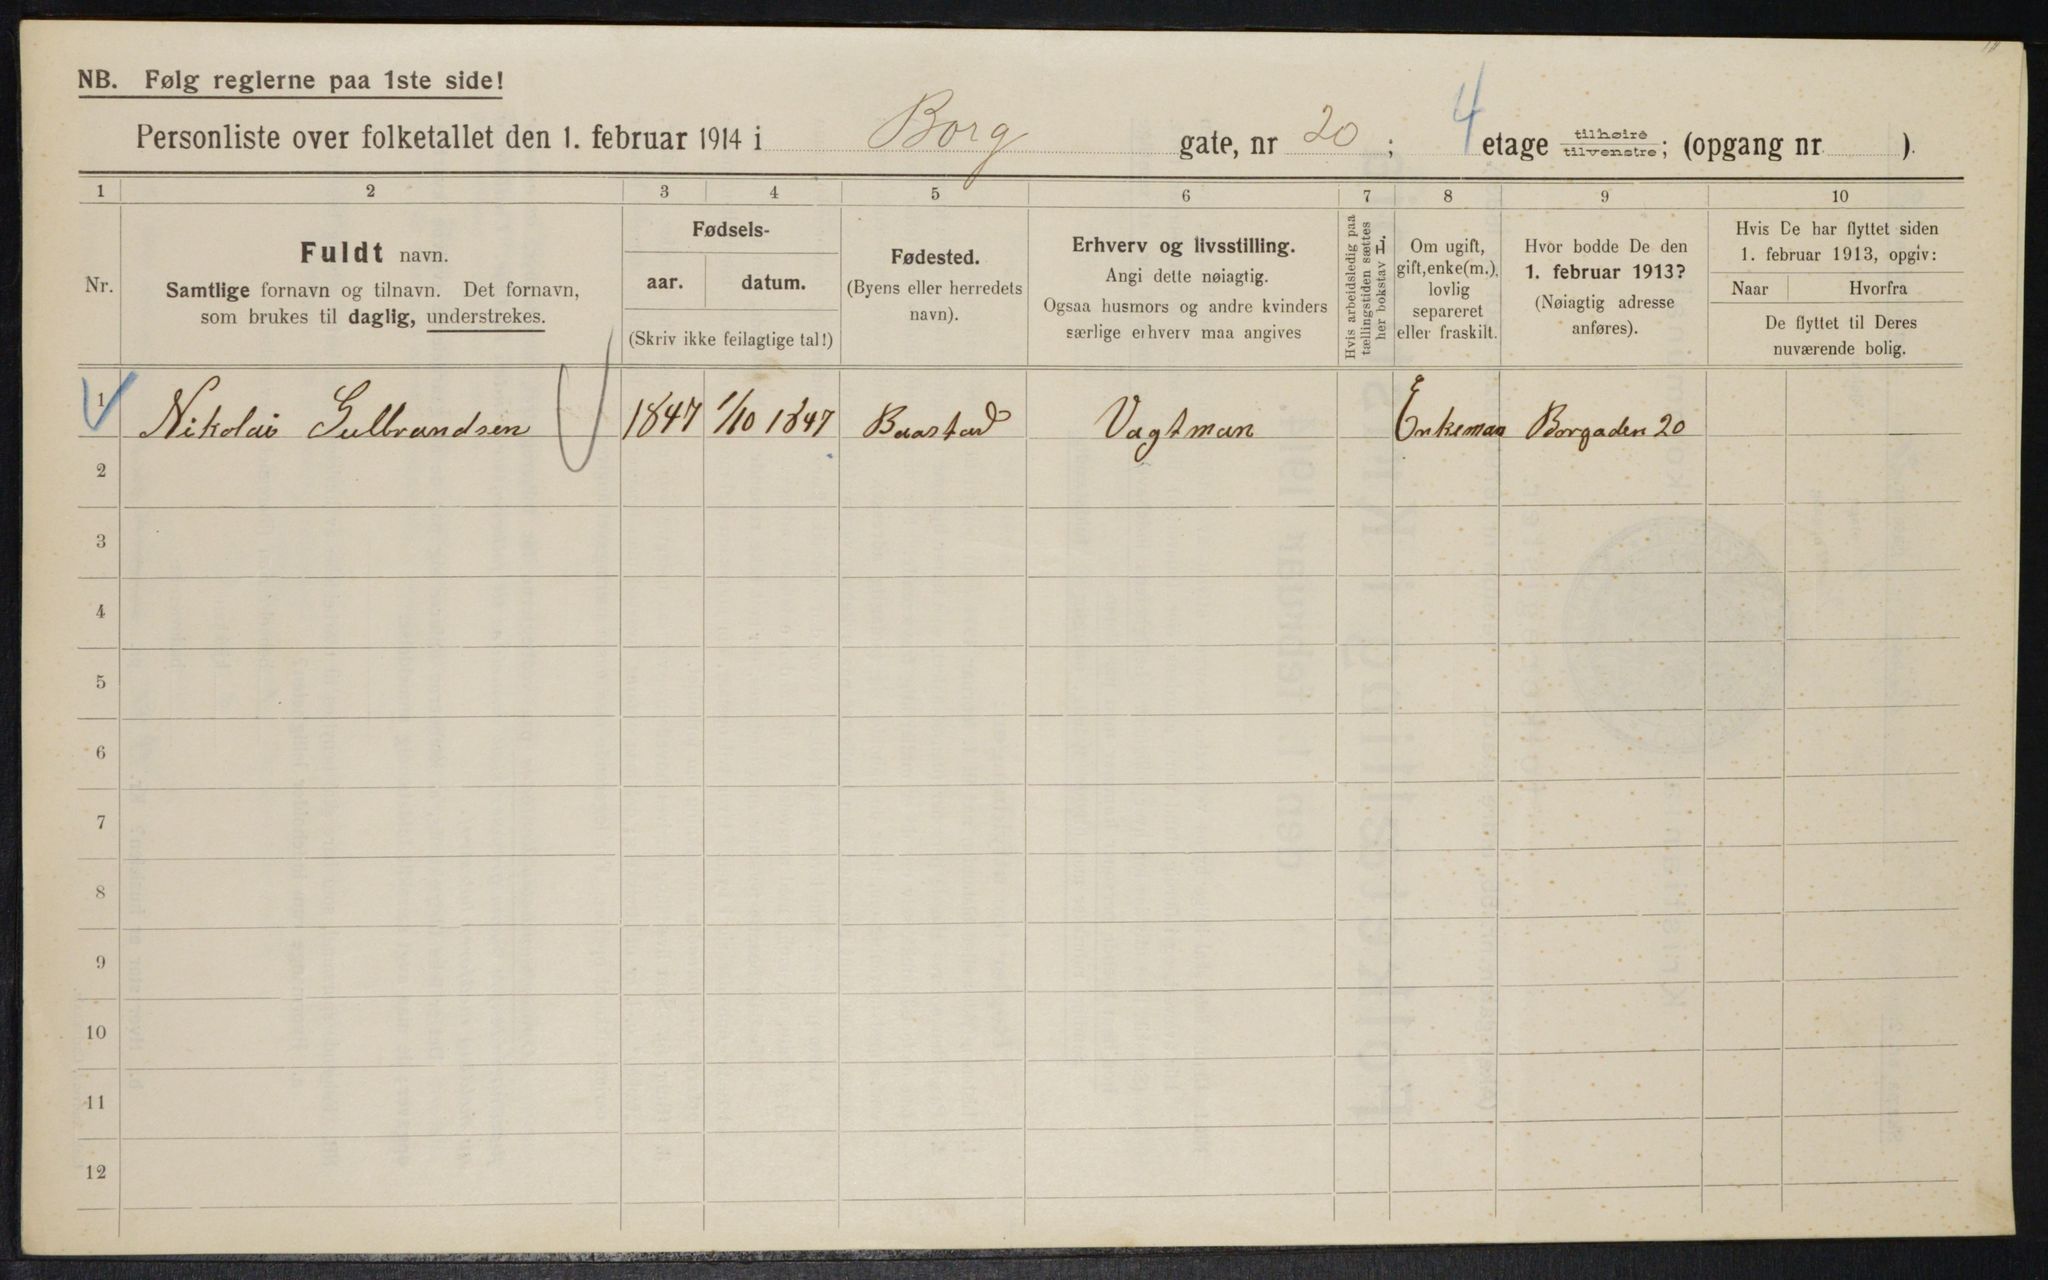 NB. Følg reglerne paa 1ste side!
Personliste over folketallet den 1. februar 1914 i Borg gate, nr 20 ; 4 etage tilhøire tilvenstre; (opgang nr ).
1 2 3 4 5 6 7 8 9 10
Nr.
Fuldt navn.
Samtlige fornavn og tilnavn. Det fornavn,
som brukes til daglig, understrekes.
Fødsels-
aar. datum.
(Skriv ikke feilagtige tal!)
Fødested.
(Byens eller herredets
navn).
Erhverv og livsstilling.
Angi dette nøiagtig.
Ogsaa husmors og andre kvinders
særlige erhverv maa angives
Hvis arbeidsledig paa
tællingstiden sættes
her bokstav L.
Om ugift,
gift, enke(m.),
lovlig
separeret
eller fraskilt.
Hvor bodde De den
1. februar 1913?
(Nøiagtig adresse
anføres).
Hvis De har flyttet siden
1. februar 1913, opgiv:
Naar Hvorfra
De flyttet til Deres
nuværende bolig.
1 Nikolai Gulbrandsen 1847 1/10 1847 Baastad Vagtman Enkeman Borgaden 20
2
3
4
5
6
7
8
9
10
11
12